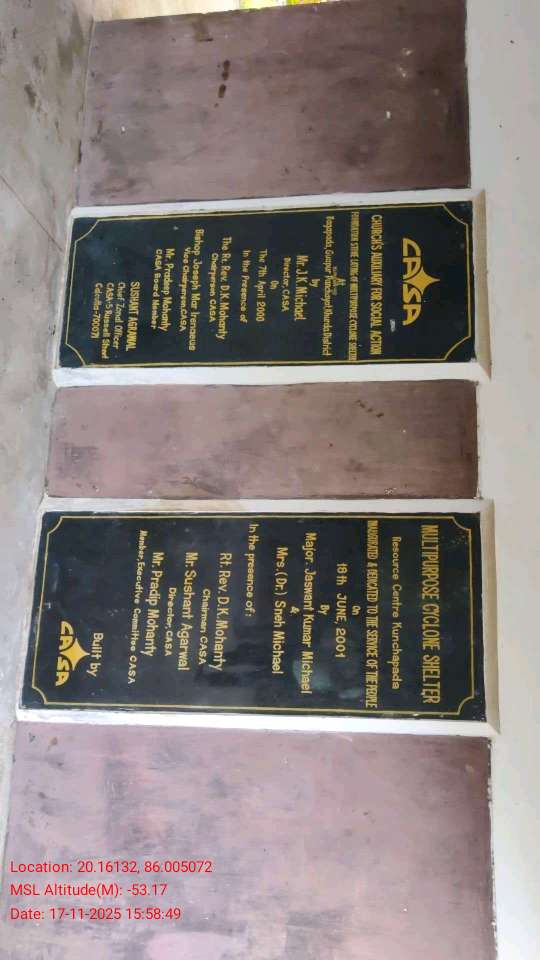 CASA
CHURCH'S AUXILIARY FOR SOCIAL ACTION
FOUNDATION STONE LAYING OF MULTIPURPOSE CYCLONE SHELTER
At
Panchayat, Khurda District
by
Mr. J.K. Michael
Director, CASA
On
The 7th April 2000
In the Presence of
The Rt. Rev. D.K. Mohanty
Chairperson CASA
Bishop Joseph Mar Irenaeus
Vice Chairperson, CASA
Mr. Pradeep Mohanty
CASA Board Member
SUSHANT AGRAWAL
Chief Zonal Officer
CASA-5 Russell Street
Calcutta-700071
MULTIPURPOSE CYCLONE SHELTER
Resource Centre Kunchapada
INAUGURATED & DEDICATED TO THE SERVICE OF THE PEOPLE
On
18th JUNE, 2001
By
Major. Jaswant Kumar Michael
&
Mrs. (Dr.) Sneh Michael
In the presence of:
Rt. Rev. D.K. Mohanty
Chairman CASA
Mr. Sushant Agarwal
Director, CASA
Mr. Pradip Mohanty
Member, Executive Committee CASA
Built by
CASA
Location: 20.16132, 86.005072
MSL Altitude(M): -53.17
Date: 17-11-2025 15:58:49